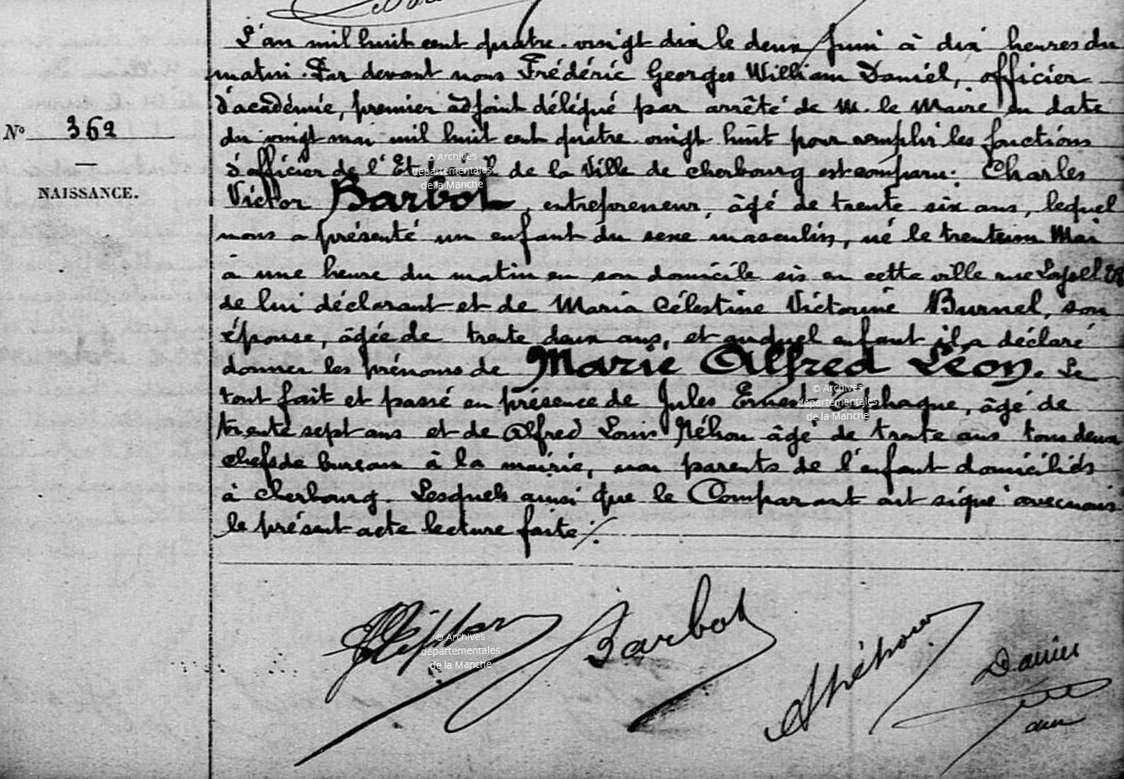 L'an mil huit cent quatre-vingt dix le deux Juin à dix heures du
matin. Par devant nous Frédéric Georges William Daniel, officier
d'académie, premier adjoint délégué par arrêté de M. le Maire en date
du vingt mai mil huit cent quatre-vingt huit pour remplir les fonctions
Nº 362
d'officier de l'Etat civil de la Ville de Cherbourg est comparu: Charles
NAISSANCE.
Victor Barbot, entrepreneur, âgé de trente six ans, lequel
nous a présenté un enfant du sexe masculin, né le trente un Mai
à une heure du matin en son domicile sis en cette ville rue
de lui déclarant et de Maria Célestine Victorine Burnel, son
épouse, âgée de trente deux ans, et auquel enfant il a déclaré
donner les prénoms de Marie Alfred Léon. Le
tout fait et passé en présence de Jules Ernest âgé de
trente sept ans et de Alfred Louis Néhou âgé de trente ans tous deux
chefs de bureau à la mairie, non parents de l'enfant domiciliés
à Cherbourg. Lesquels ainsi que le Comparant ont signé avec nous
le présent acte lecture faite ./.
© Archives
départementales
de la Manche
© Archives
départementales
de la Manche
© Archives
départementales
de la Manche
Barbot
ANéhou
Daniel